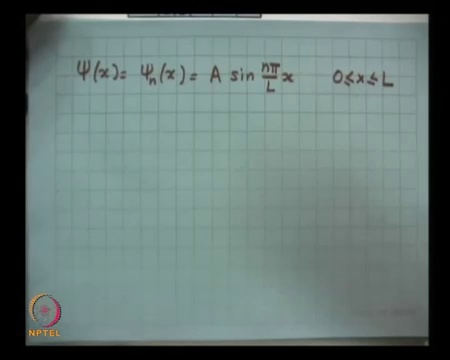 Ψ(x) = Ψₙ(x) = A sin nπ/L x 0 ≤ x ≤ L
NPTEL